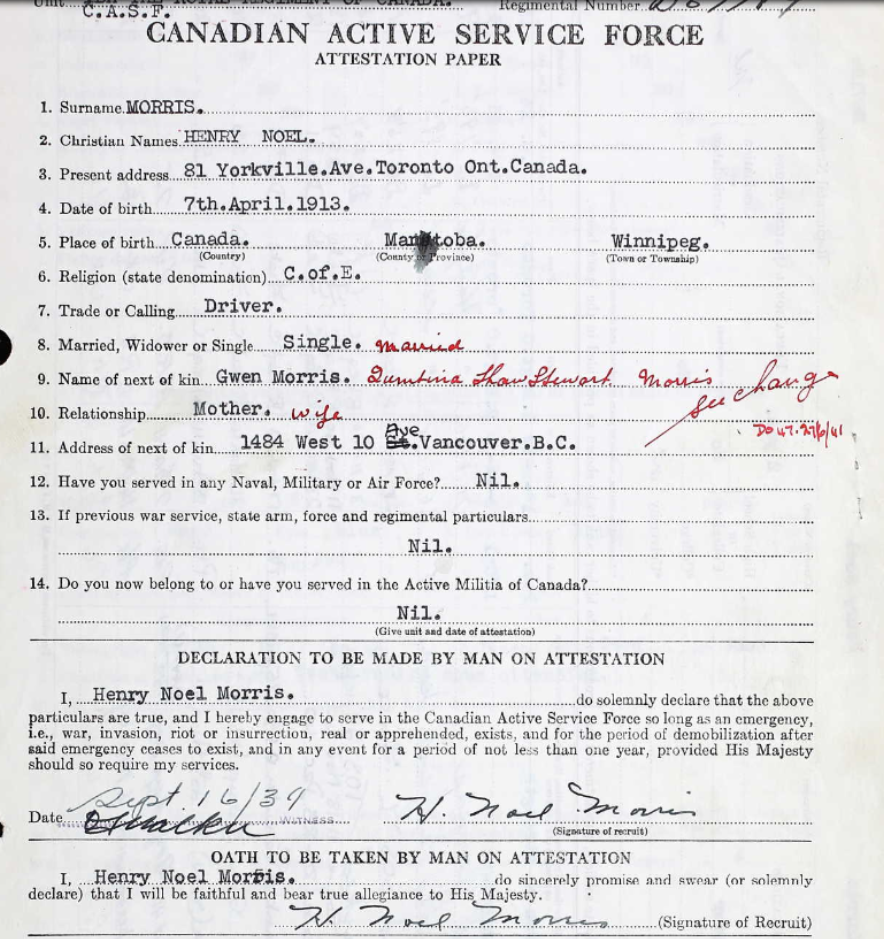 Unit ROYAL REGIMENT OF CANADA. Regimental Number
C.A.S.F.
CANADIAN ACTIVE SERVICE FORCE
ATTESTATION PAPER
1. Surname MORRIS.
2. Christian Names HENRY NOEL.
3. Present address 81 Yorkville.Ave.Toronto Ont.Canada.
4. Date of birth 7th.April.1913.
5. Place of birth Canada. Manitoba. Winnipeg.
(Country) (County or Province) (Town or Township)
6. Religion (state denomination) C.of.E.
7. Trade or Calling Driver.
8. Married, Widower or Single Single. married
9. Name of next of kin Gwen Morris. Shaw Stewart Morris see change
10. Relationship Mother. wife
Ave
11. Address of next of kin 1484 West 10 St.Vancouver.B.C.
12. Have you served in any Naval, Military or Air Force? Nil.
13. If previous war service, state arm, force and regimental particulars
Nil.
14. Do you now belong to or have you served in the Active Militia of Canada?
Nil.
(Give unit and date of attestation)
DECLARATION TO BE MADE BY MAN ON ATTESTATION
I, Henry Noel Morris. do solemnly declare that the above
particulars are true, and I hereby engage to serve in the Canadian Active Service Force so long as an emergency,
i.e., war, invasion, riot or insurrection, real or apprehended, exists, and for the period of demobilization after
said emergency ceases to exist, and in any event for a period of not less than one year, provided His Majesty
should so require my services.
Date Sept. 16/39 WITNESS H. Noel Morris
(Signature of recruit)
OATH TO BE TAKEN BY MAN ON ATTESTATION
I, Henry Noel Morris. do sincerely promise and swear (or solemnly
declare) that I will be faithful and bear true allegiance to His Majesty.
H. Noel Morris (Signature of Recruit)